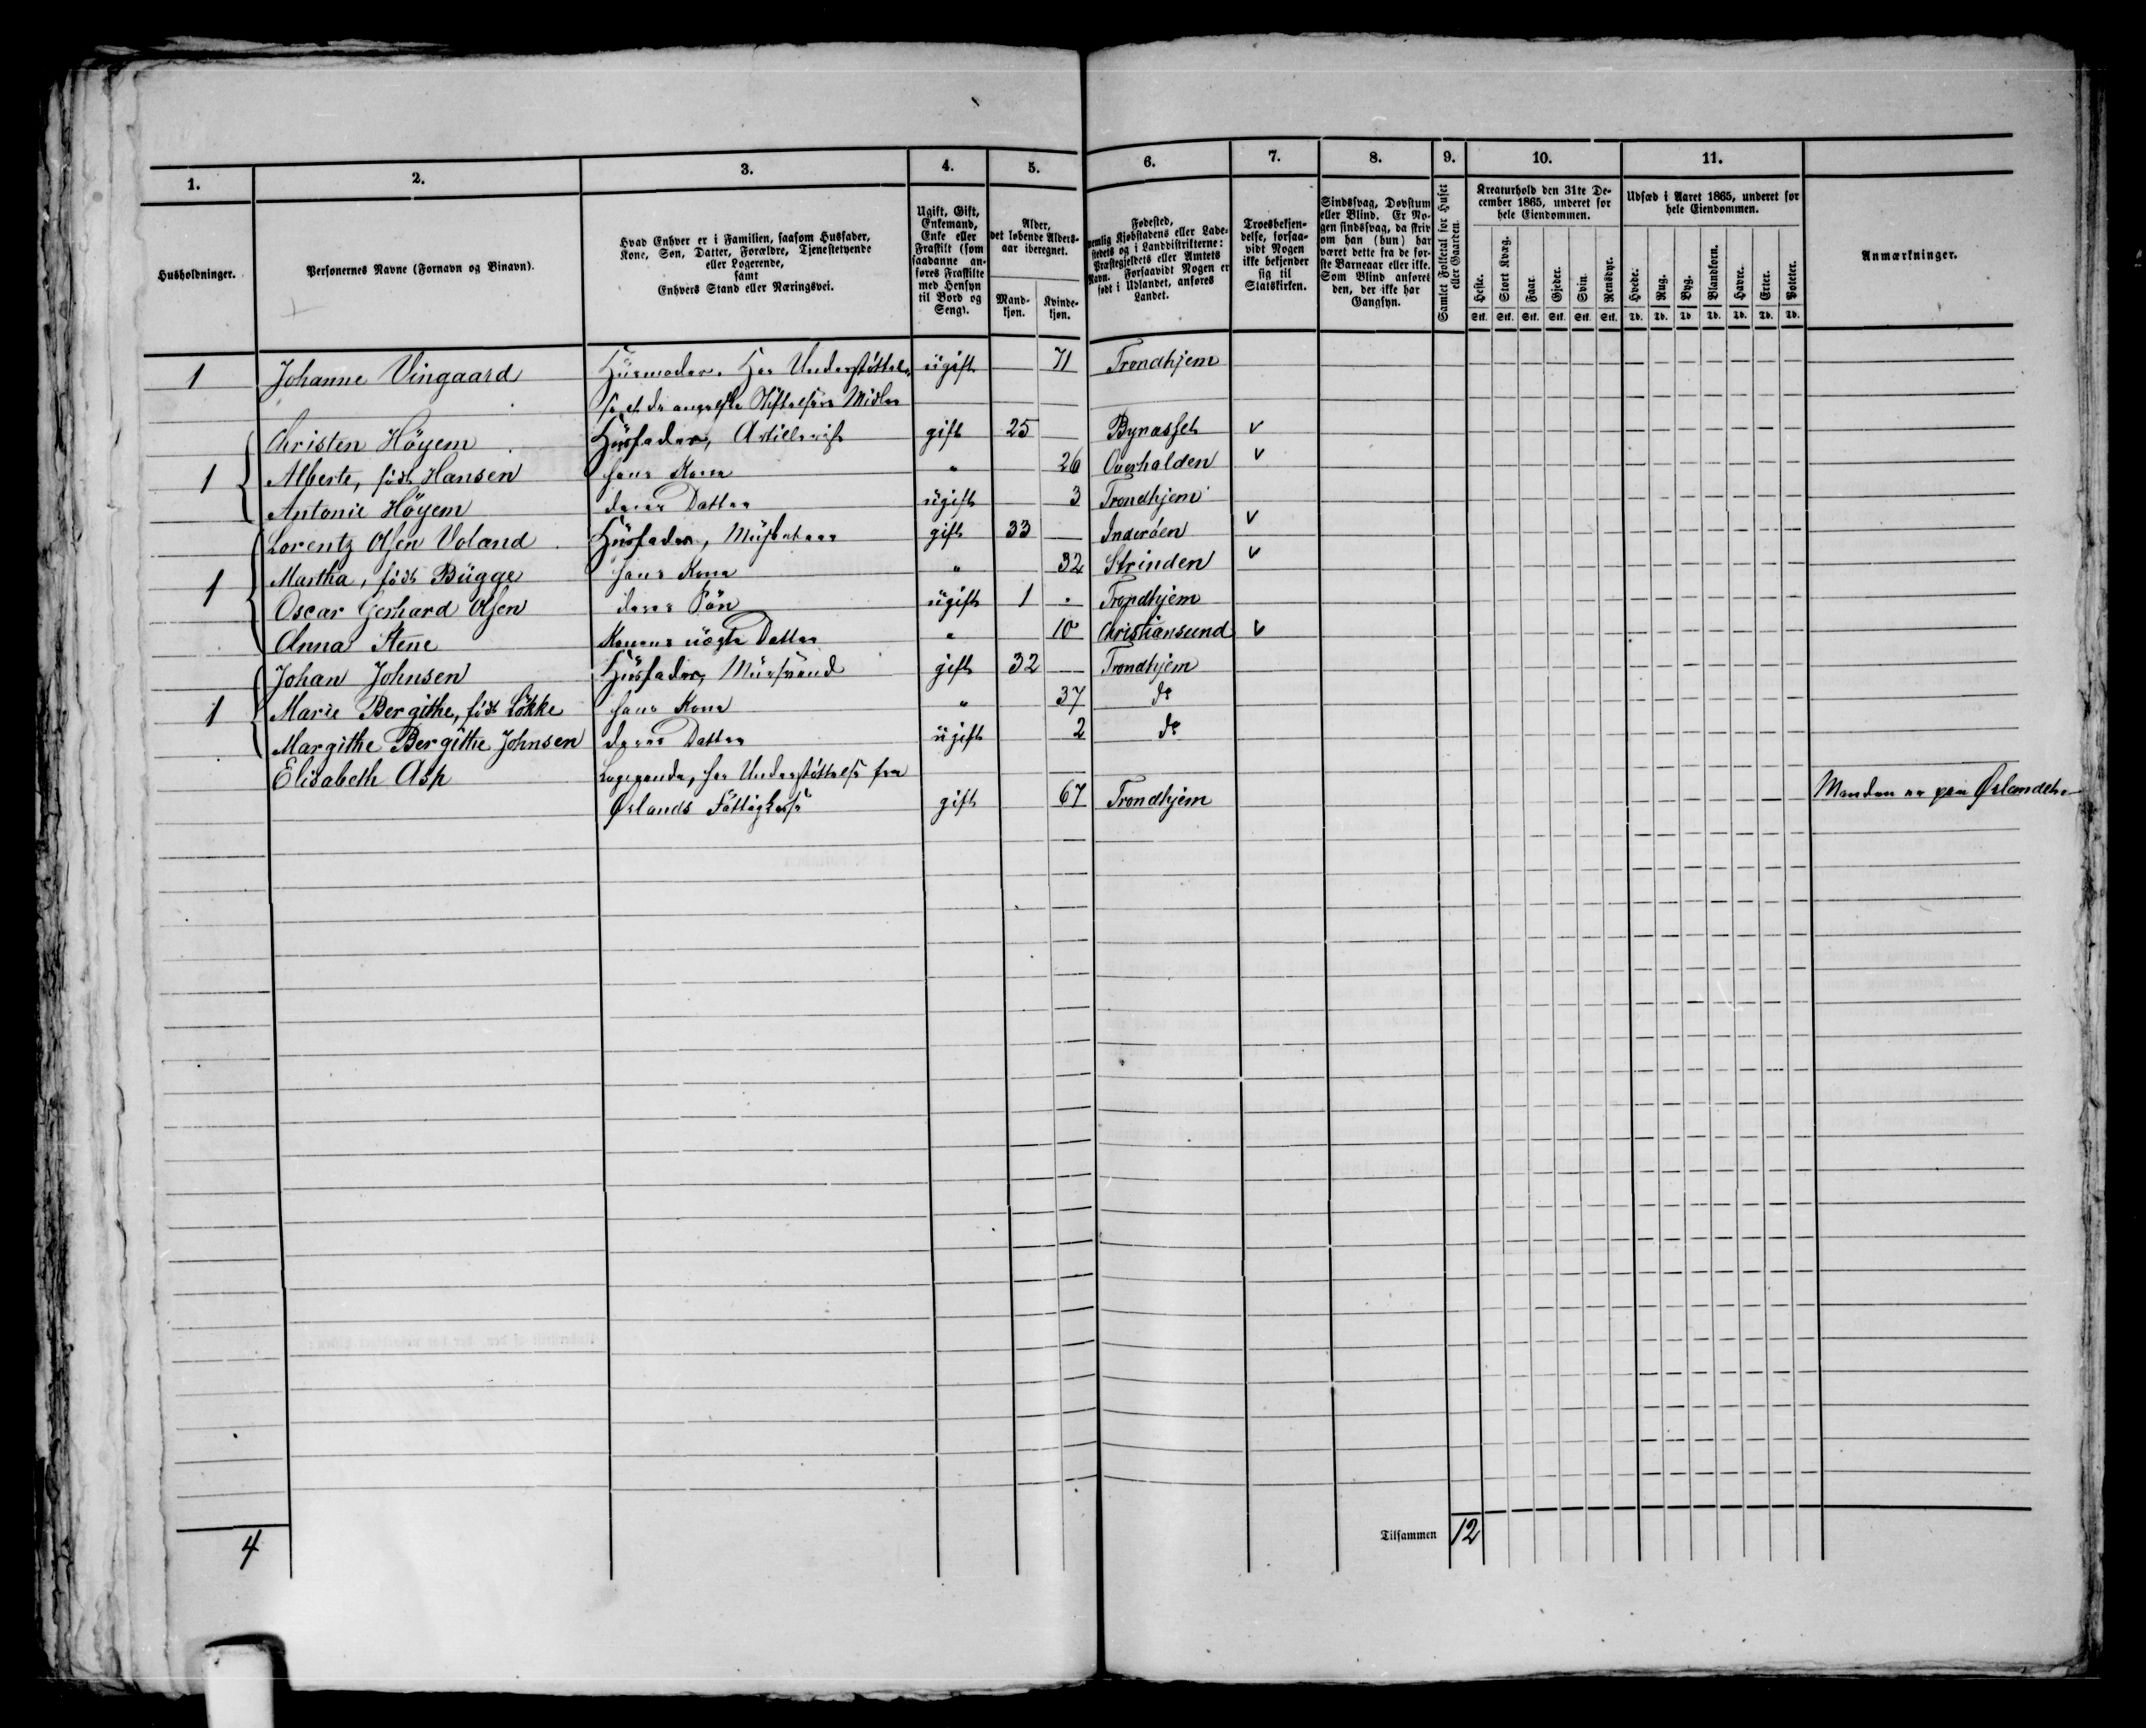 1. 2. 3. 4. 5. 6. 7. 8. 9. 10. 11.
Husholdninger.
Personernes Navne (Fornavn og Binavn).
Hvad Enhver er i Familien, saasom Husfader,
Kone, Søn, Datter, Forældre, Tjenestetyende
eller Logerende,
samt
Enhvers Stand eller Næringsvei.
Ugift, Gift,
Enkemand,
Enke eller
Fraskilt (som
saadanne an-
føres Fraskilte
med Hensyn
til Bord og
Seng).
Alder,
det løbende Alders-
aar iberegnet.
Mand-
kjøn.
Kvinde-
kjøn.
Fødested,
nemlig Kjøbstadens eller Lade-
stedets og i Landdistrikterne:
Præstegjeldets eller Amtets
Navn. Forsaavidt Nogen er
født i Udlandet, anføres
Landet.
Troesbekjen-
delse, forsaa-
vidt Nogen
ikke bekjender
sig til
Statskirken.
Sindssvag, Døvstum
eller Blind. Er No-
gen sindssvag, da skriv
om han (hun) har
været dette fra de før-
ste Barneaar eller ikke.
Som Blind anføres
den, der ikke har
Gangsyn.
Samlet Folketal for Huset
eller Gaarden.
Kreaturhold den 31te De-
cember 1865, underet for
hele Eiendommen.
Heste. Stort Kvæg. Faar. Gjeder. Svin. Rensdyr.
Stk. Stk. Stk. Stk. Stk. Stk.
Udsæd i Aaret 1865, underet for
hele Eiendommen.
Hvede. Rug. Byg. Blandkorn. Havre. Erter. Poteter.
Td. Td. Td Td. Td. Td. Td.
Anmærkninger.
1 Johanne Vingaard Husmoder. Har Understøttel- ugift 71 Trondhjem
se af de angelske Stiftelsers Midler
Christen Höyem Husfader, Artillerist gift 25 Bynæsset v
1 Alberte, født Hansen hans Kone " 26 Overhalden v
Antonie Höyem deres Datter ugift 3 Trondhjem
Lorentz Olsen Voland Husfader, gift 33 Inderöen v
1 Martha, født Bügge hans Kone " 32 Strinden v
Oscar Gerhard Olsen deres Søn ugift 1 Trondhjem
Anna Stene Konens uægte Datter " 10 Christiansund v
Johan Johnsen Husfader, Mursvend gift 32 Trondhjem
1 Marie Bergithe, født Lökke hans Kone " 37 do
Margithe Bergithe Johnsen deres Datter ugift 2 do
Elisabeth Asp Logerende, har Understøttelse fra
Ørlands Fattigkasse gift 67 Trondhjem Manden er paa Ørlandet.
4
Tilsammen 12